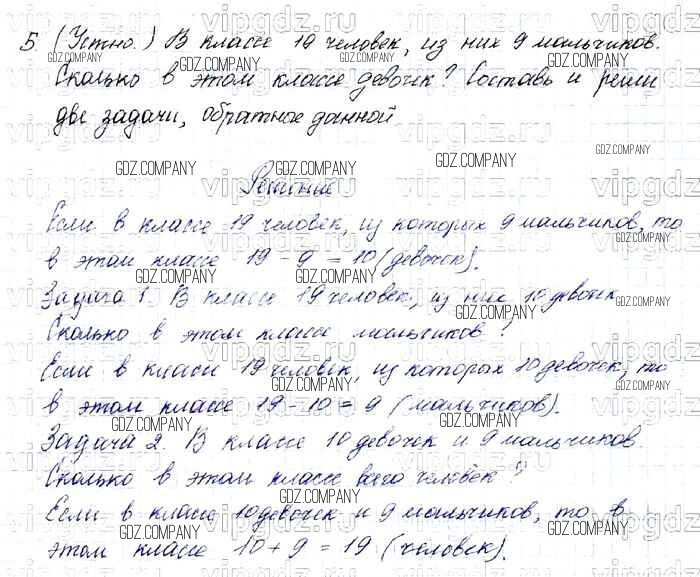 5 (Устно.) В классе 19 человек, из них 9 мальчиков.
Сколько в этом классе девочек? Составь и реши
две задачи, обратные данной
Решение
Если в классе 19 человек, из которых 9 мальчиков, то
в этом классе 19 - 9 = 10 (девочек).
Задача 1. В классе 19 человек, из них 10 девочек
Сколько в этом классе мальчиков?
Если в классе 19 человек, из которых 10 девочек, то
в этом классе 19 - 10 = 9 (мальчиков).
Задача 2. В классе 10 девочек и 9 мальчиков.
Сколько в этом классе всего человек?
Если в классе 10 девочек и 9 мальчиков, то в
этом классе 10 + 9 = 19 (человек).
GDZ.COMPANY
vipgdz.ru